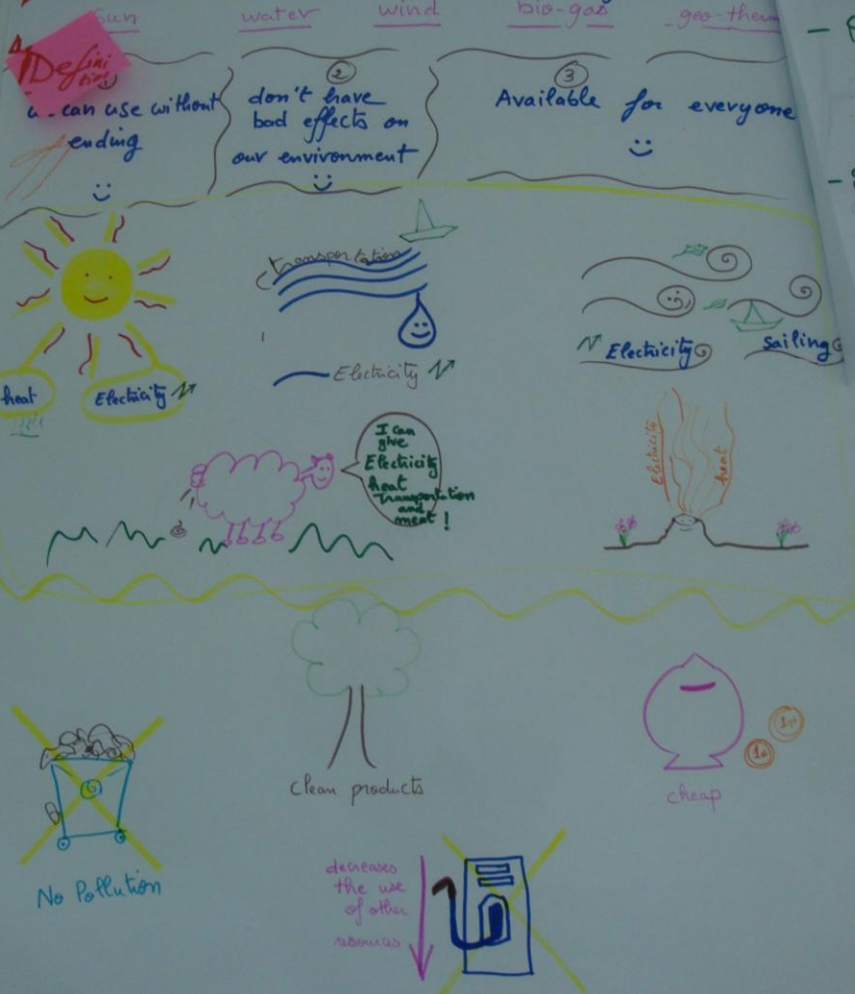 sun water wind bio-gas geo-therm
Defini
tion
②
③
u can use without
ending
don't have
bad effects on
our environment
Available for everyone
transportation
heat
Electricity
Electricity
Electricity
Sailing
I can
give
Electricity
heat
Transportation
and
meat!
Electricity
heat
clean products
1c
cheap
No Pollution
decreases
the use
of other
resources